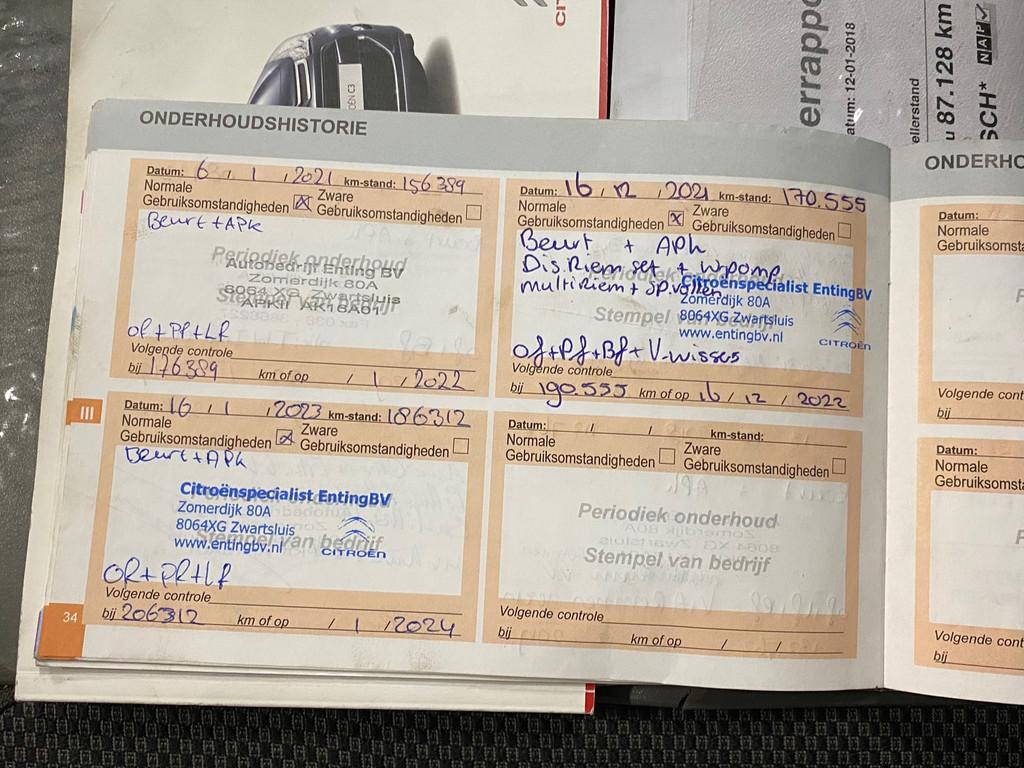 CIT
ËN C3
errappo
atum: 12-01-2018
ellerstand
u 87.128 km
SCH* NAP
ONDERHOUDSHISTORIE
Datum: 6 / 1 / 2021 km-stand: 156389
Normale Gebruiksomstandigheden ☒ Zware Gebruiksomstandigheden ☐
Beurt + APK
Periodiek onderhoud
Autobedrijf Enting BV
Zomerdijk 80A
8064 XG Zwartsluis
Stempel van bedrijf
OF+PF+LF
Volgende controle
bij 176389 km of op / 1 / 2022
Datum: 16 / 12 / 2021 km-stand: 170.555
Normale Gebruiksomstandigheden ☒ Zware Gebruiksomstandigheden ☐
Beurt + APk
Dis.Riem set + w.pomp
multiRiem + sp.rollen
Periodiek onderhoud
Stempel van bedrijf
Citroënspecialist EntingBV
Zomerdijk 80A
8064XG Zwartsluis
www.entingbv.nl
CITROËN
Of+Pf+Bf+V-wissers
Volgende controle
bij 190.555 km of op 16 / 12 / 2022
III
Datum: 16 / 1 / 2023 km-stand: 186312
Normale Gebruiksomstandigheden ☒ Zware Gebruiksomstandigheden ☐
Beurt + APk
Citroënspecialist EntingBV
Zomerdijk 80A
8064XG Zwartsluis
www.entingbv.nl
Stempel van bedrijf
CITROËN
OF+PF+LF
Volgende controle
bij 206312 km of op / 1 / 2024
Datum: / / km-stand:
Normale Gebruiksomstandigheden ☐ Zware Gebruiksomstandigheden ☐
Periodiek onderhoud
Stempel van bedrijf
Volgende controle
bij km of op / /
34
ONDERHO
Datum:
Normale
Gebruiksomsta
P
Volgende cont
bij
Datum:
Normale
Gebruiksomsta
P
Volgende cont
bij